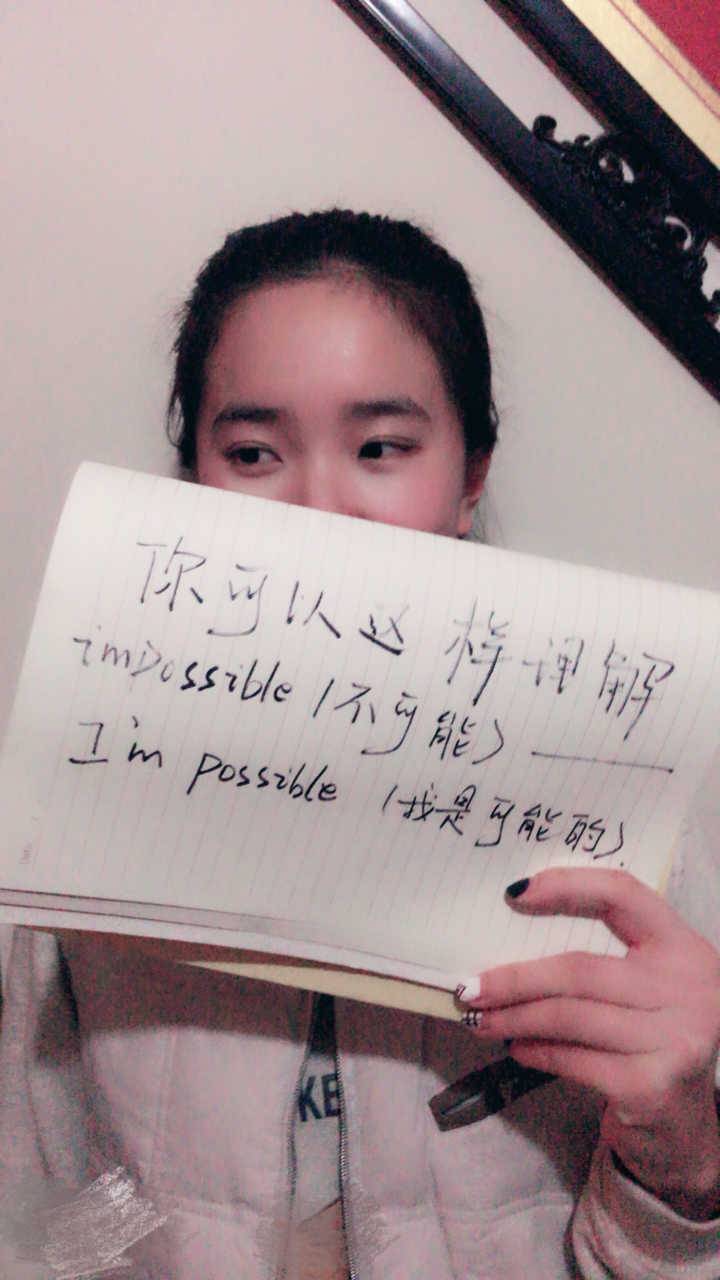 你可以这样理解
impossible(不可能)——
I'm possible (我是可能的).
KE